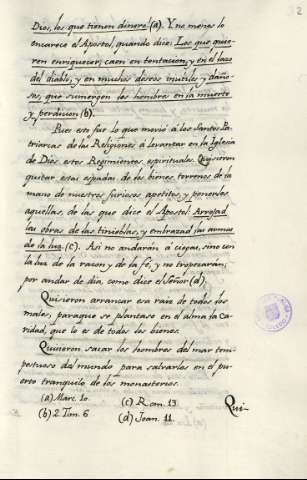 2
Dios, los que tienen dinero (a). Y no menos lo
encarece el Apostol, quando dice: Los que quie-
ren enriquecer, caen en tentacion, y en el lazo
del diablo, y en muchos deseos inutiles y daño-
sos, que sumergen los hombres en la muerte
y perdicion (b).
Pues esto fue lo que movió a los Santos Pa-
triarcas de las Religiones a levantar en la Iglesia
de Dios estos Regimientos espirituales. Quisieron
quitar estas espadas de los bienes terrenos de la
mano de nuestros furiosos apetitos, y ponerles
aquellas, de las que dice el Apostol: Arrojad
las obras de las tinieblas, y embrazad las armas
de la luz. (c). Asi no andarán a ciegas, sino con
la luz de la razon y de la fé, y no tropezarán,
por andar de dia, como dice el Señor (d).
Quisieron arrancar esa raiz de todos los
males, paraque se plantase en el alma la ca-
ridad, que lo es de todos los bienes.
Quisieron sacar los hombres del mar tem-
pestuoso del mundo para salvarlos en el pu-
erto tranquilo de los monasterios.
(a) Marc. 10. (c) Rom. 13
(b) 2 Tim. 6 (d) Joan. 11.
Qui-